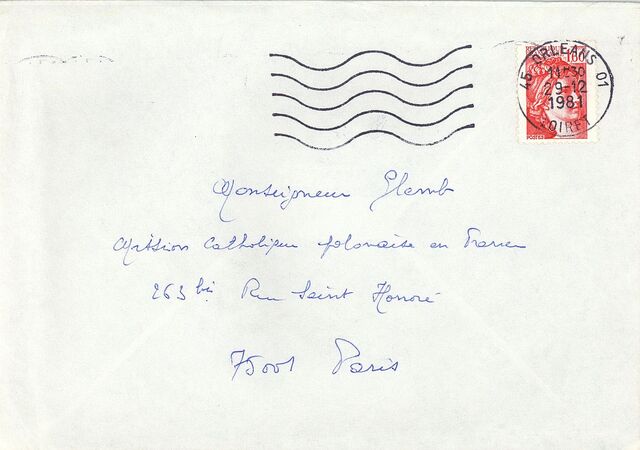 45 ORLEANS 01
1,60
11H30
29-12
1981
LOIRET
Monseigneur Glemb
Mission Catholique polonaise en France
263 bis Rue Saint Honoré
75001 Paris